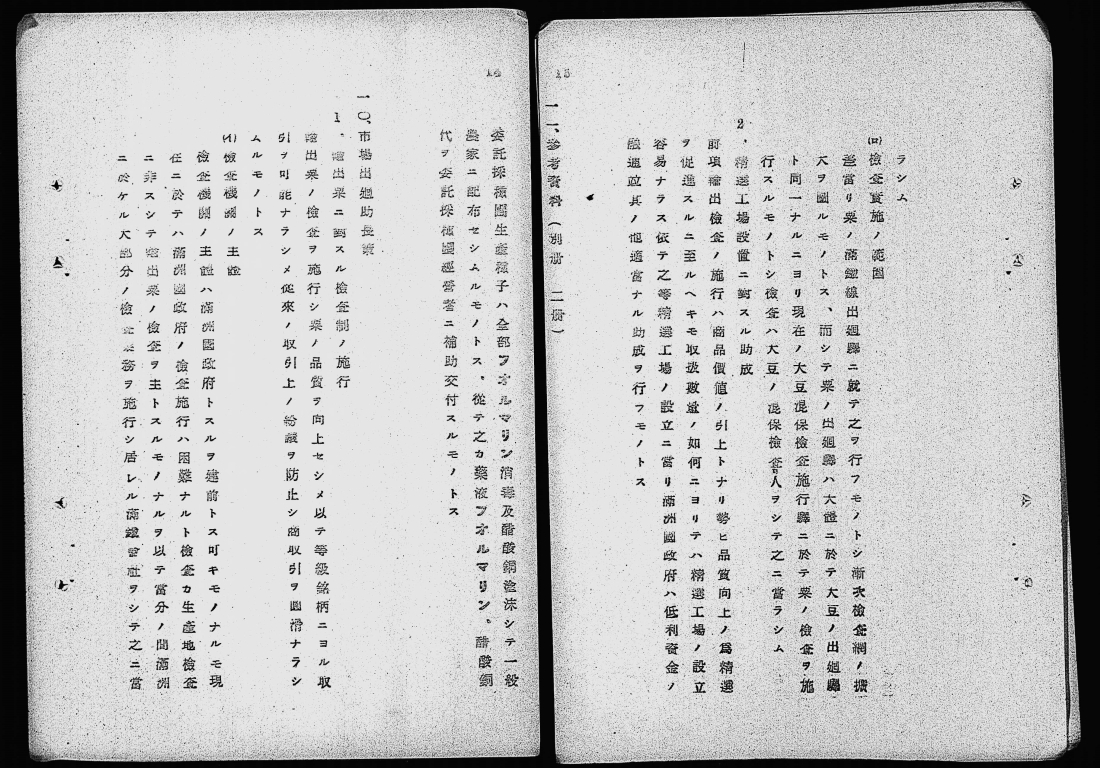 14
委託採種圃生産種子ハ全部フオルマリン消毒及醋酸銅塗沫シテ一般
農家ニ配布セシムルモノトス、從テ之カ藥液フオルマリン、醋酸銅
代ヲ委託採種圃經營者ニ補助交付スルモノトス
一〇、市場出廻助長策
1、輸出粟ニ對スル檢査制ノ施行
輸出粟ノ檢査ヲ施行シ粟ノ品質ヲ向上セシメ以テ等級銘柄ニヨル取
引ヲ可能ナラシメ從來ノ取引上ノ紛議ヲ防止シ商取引ヲ圓滑ナラシ
ムルモノトス
(イ)檢査機關ノ主體
檢査機關ノ主體ハ滿洲國政府トスルヲ建前トス可キモノナルモ現
在ニ於テハ滿洲國政府ノ檢査施行ハ困難ナルト檢査カ生產地檢査
ニ非スシテ輸出粟ノ檢査ヲ主トスルモノナルヲ以テ當分ノ間滿洲
ニ於ケル大部分ノ檢査業務ヲ施行シ居レル滿鐵會社ヲシテ之ニ當
15
ラシム
(ロ)檢査實施ノ範圍
差當リ粟ノ滿鐵線出廻驛ニ就テ之ヲ行フモノトシ漸次檢査網ノ擴
大ヲ圖ルモノトス、而シテ粟ノ出廻驛ハ大體ニ於テ大豆ノ出廻驛
ト同一ナルニヨリ現在ノ大豆混保檢査施行驛ニ於テ粟ノ檢査ヲ施
行スルモノトシ檢査ハ大豆ノ混保檢査人ヲシテ之ニ當ラシム
2、精選工場設置ニ對スル助成
前項輸出檢査ノ施行ハ商品價値ノ引上トナリ勢ヒ品質向上ノ爲精選
ヲ促進スルニ至ルヘキモ取扱數量ノ如何ニヨリテハ精選工場ノ設立
容易ナラス依テ之等精選工場ノ設立ニ當リ滿洲國政府ハ低利資金ノ
融通竝其ノ他適當ナル助成ヲ行フモノトス
一一、參考資料(別册 二册)